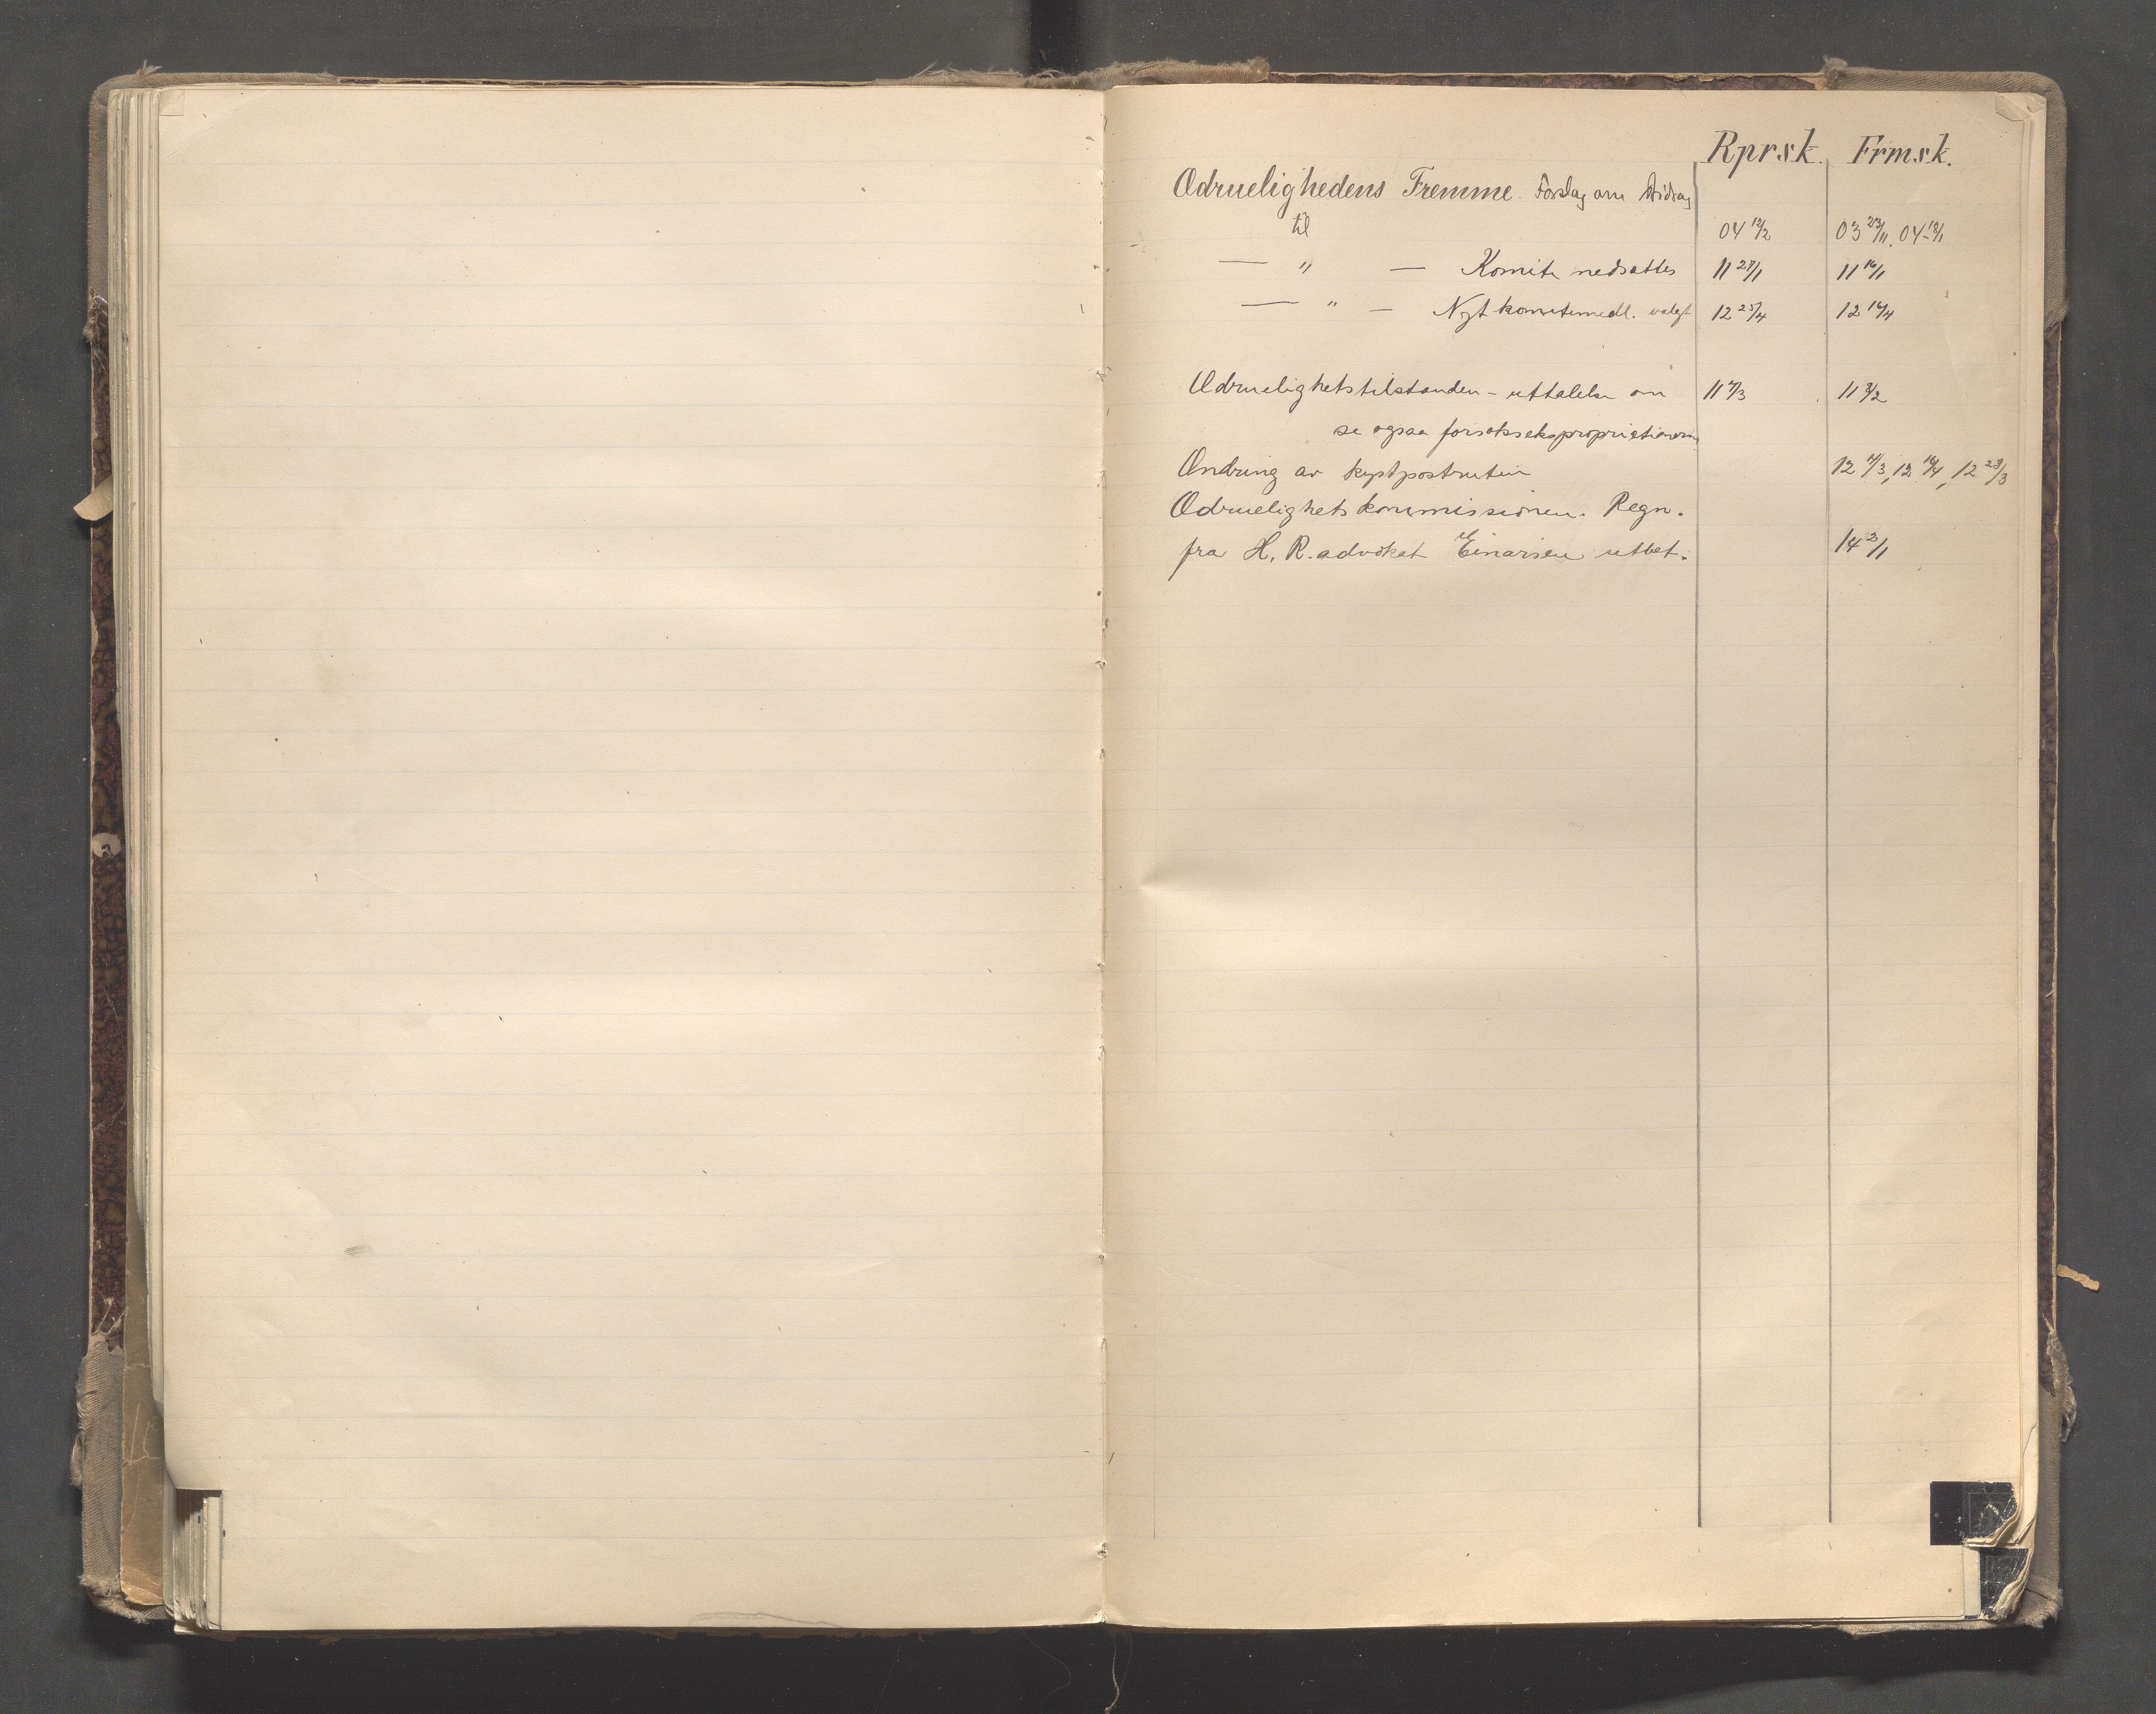 Rprsk. Frmsk.
Ædruelighedens Fremme. Forslag om Bidrag
til 04 12/2 03 23/11, 04 18/1
— " — Komite nedsættes 11 27/1 11 16/1
— " — Nyt komitemedl. valgt 12 25/4 12 16/4
Ædruelighetstilstanden - uttalelse om 11 7/3 11 8/2
se ogsaa forsøksekspropriationerne
Ændring av kystpostrutein 12 11/3, 12 16/4, 12 28/3
Ædruelighetskommissionen. Regn.
fra H. R. advokat Einarsen utbet. 14 2/1